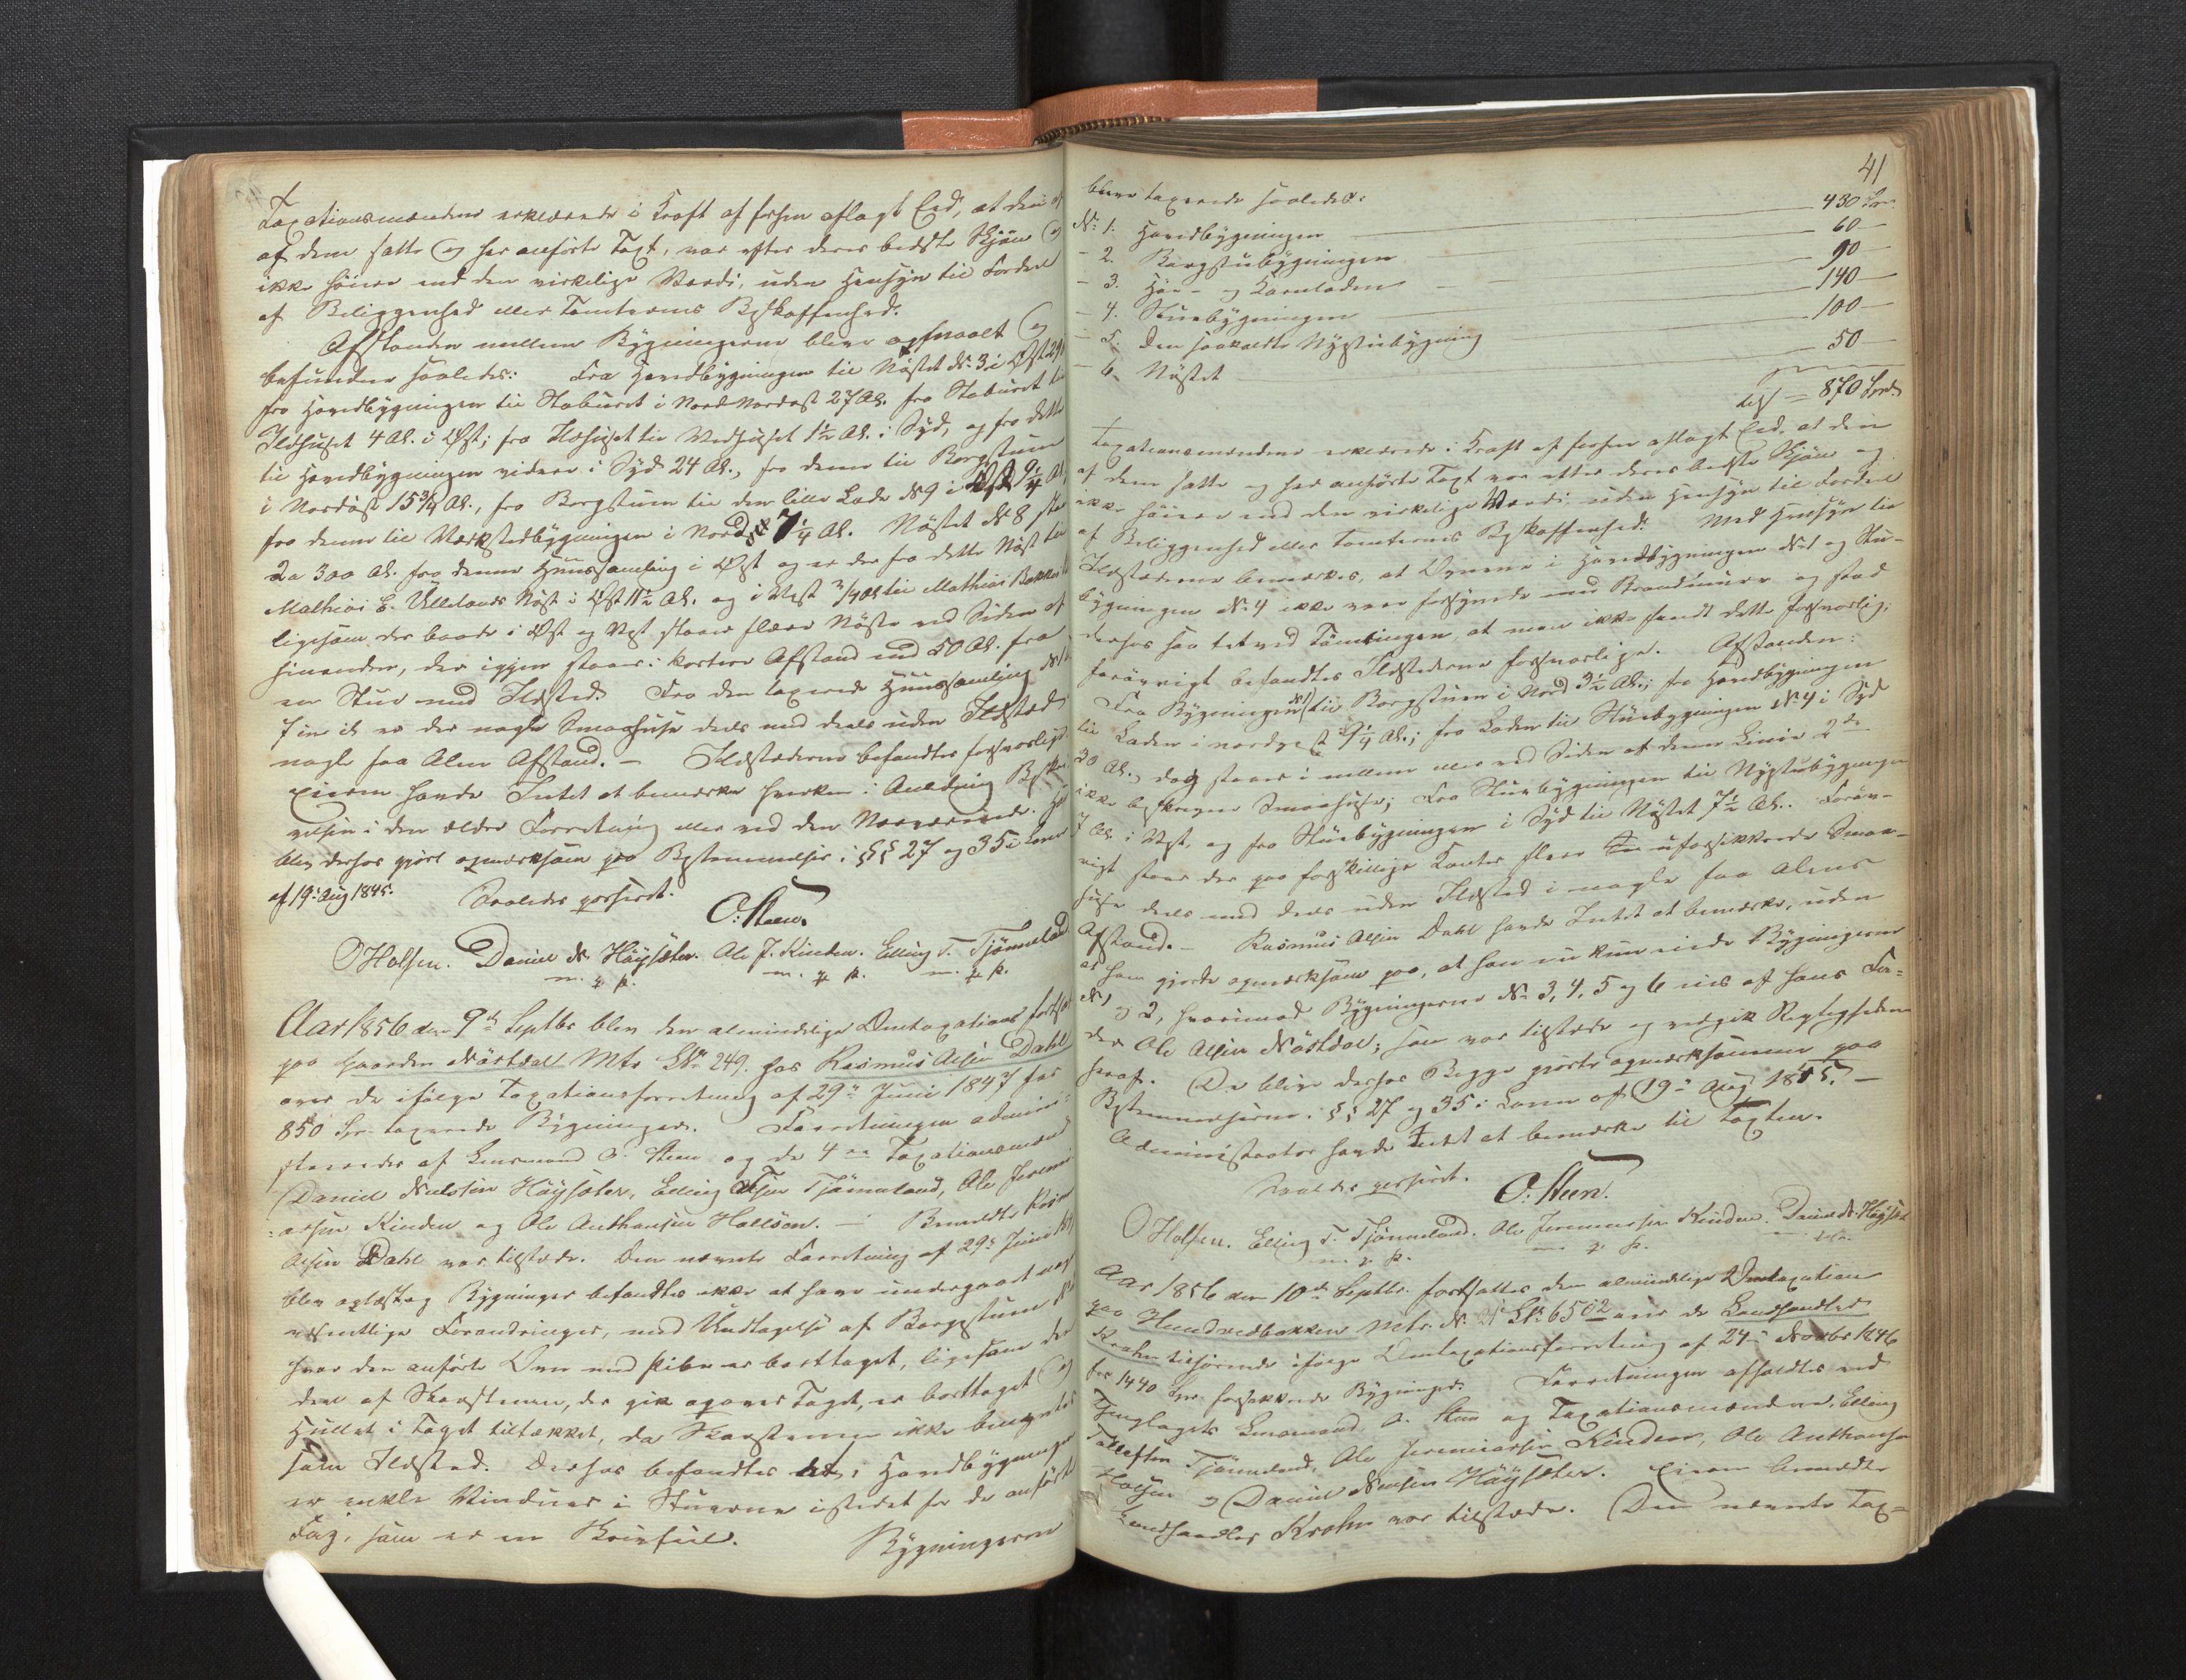 Taxationsmændene erklærede i Kraft af forhen aflagt Eed, at den
af dem satte og her anførte Taxt, var efter deres bedste Skjøn og
ikke høiere end den virkelige Værdi, uden Hensyn til Fordel
af Beliggenhed eller Tomternes Beskaffenhed.
Afstanden mellem Bygningerne blev opmaalt og
befunden saaledes: Fra Hovedbygningen til Nøstet No 3 i Øst 29
fra Hovedbygningen til Staburet i Nord Nordost 27 Al. fra Staburet til
Ildhuset 4 Al. i Øst; fra Ildhuset til Vedhuset 1½ Al. i Syd, og fra dette
til Hovedbygningen videre i Syd 24 Al., fra denne til Borgstuen
i Nordøst 15¾ Al., fra Borgstuen til den lille Lade No 9 i Øst 9¼ Al.
fra denne til Værkstedbygningen i Nordost 7¼ Al. Nøstet No 8 staar
2 a 300 Al. fra denne Huussamling i Øst og er der fra dette Nøst til
Mathias E. Ullelands Nøst i Øst 11½ Al. og i Vest ¾ Al til Mathias Bakke
ligesom der baade i Øst og Vest staaer flere Nøste ved Siden af
hinanden, der igjen staaer i kortere Afstand end 50 Al. fra
en Stue med Ildsted. Fra den taxerede Huussamling No 1
7 er der nogle Smaahuse deels med deels uden Ildsted
nogle faa Alen Afstand. — Ildstederne befandtes forsvarlige.
Eieren havde Intet at bemærke hverken i Anledning Beskri
velsen i den ældre Forretning eller ved den Nærværende. Han
blev derhos gjort opmærksom paa Bestemmelser i §§ 27 og 35 i Loven
af 19: Aug 1845. Saaledes passeret.
O: Steen.
O Holsen. Daniel N. Høysæter. Ole J. Kinden. Elling T. Tjønneland
m. p. p. m. p. p. m. p. p.
Aar 1856 den 9de Septbr blev den almindelige Omtaxations fortsat
paa Gaarden Nøstdal Mtr No 249. hos Rasmus Alsen Dahl
over de ifølge Taxationsforretning af 29de Juni 1847 for
850 Spr. taxerede Bygninger. Forretningen admini-
streredes af Lensmand O. Steen og de 4re Taxationsmænd
Daniel Nielsen Høysæter, Elling Tjønneland, Ole Jeremi
asen Kinden og Ole Anthonsen Holsen. — Bemeldte Rasmus
Alsen Dahl var tilstæde. Den nævnte Forretning af 29de Juni 1847
blev oplæst og Bygninger befandtes ikke at have undergaaet nogen
væsentlige Forandringer, med Undtagelse af Borgstuen No 2
hvor den anførte Ovn med Piber er borttaget, ligesom den
deel af Skorstenen, der gik op over Taget, er borttaget og
Hullet i Taget tiltækket, da Skorstenen ikke benyttes
som Ildsted. Derhos befandtes at i Hovedbygningen
er enkle Vinduer i Stuerne istedet for de anførte
Fag, som er en Skrivfeil. Bygningerne
41
bleve taxerede saaledes:
No 1. Hovedbygningen — 430 Spr.
- 2. Borgstubygningen — 60 —
- 3. Høe- og Kornladen — 90 —
- 4. Stuebygningen — 140 —
- 5. Den saakaldte Nystubygning — 100 —
- 6. Nøstet — 50 —
tilsf = 870 Spd.
Taxationsmændene erklærede i Kraft af forhen aflagt Eed, at den
af dem satte og her anførte Taxt var efter deres bedste Skjøn og
ikke høiere end den virkelige Værdi, uden Hensyn til Fordel
af Beliggenhed eller Tomternes Beskaffenhed. Med Hensyn til
Ildstederne bemærkes, at Ovnene i Hovedbygningen No 1 og Stu-
bygningen No 4 ikke vare forsynede med Brandmure og stod
derhos saa tet ved Tømringen, at man ikke fandt dette forsvarlig;
forøvrigt befandtes Ildstederne forsvarlige. Afstanden:
Fra Bygningen No 1 til Borgstuen i Nord 3½ Al.; fra Hovedbygningen
til Laden i nordvest 9¼ Al.; fra Laden til Stuebygningen No 4 i Syd
20 Al., dog staaer i mellem eller ved Siden af denne Linie 2de
ikke beskrevne Smaahuse; Fra Stuebygningen til Nystubygningen
7 Al. i Vest, og fra Stuebygningen i Syd til Nøstet 7½ Al.. Forøv-
rigt staaer der paa forskjellige Kanter flere uforsikkrede Smaa-
huse deels med deels uden Ildsted i nogle faa Alens
Afstand. — Rasmus Alsen Dahl havde Intet at bemærke, uden
at han gjorde opmærksom paa, at han nu kun eiede Bygningerne
No 1 og 2, hvorimod Bygningerne No 3, 4, 5 og 6 eies af hans Fa-
der Ole Alsen Nøstdal; som var tilstæde og vedgik Rigtigheden
heraf. De bleve derhos Begge gjorte opmærksomme paa
Bestemmelserne i §§ 27 og 35 i Loven af 19de Aug 1845. —
Administrator havde Intet at bemærke til Taxten.
Saaledes passeret. O: Steen.
O Holsen. Elling T. Tjønneland. Ole Jeremiassen Kinden. Daniel N. Høysæt
m. p. p. m. p. p. m. p. p.
Aar 1856 den 10de Septbr. fortsattes den almindelige Omtaxation
paa Hundvedbakken Mtr. No 21 No 650 over de Landhandler
Krohn tilhørende ifølge Omtaxationsforretning af 24de Novbr 1846
for 1440 Spr. forsikkrede Bygninger. Forretningen afholdtes ved
Thinglagets Lensmand O. Steen og Taxationsmændene, Elling
Tollefsen Tjønneland, Ole Jeremiassen Kinden, Ole Anthonsen
Holsen og Daniel Nielsen Høysæter. Eieren bemeldte
Landhandler Krohn var tilstæde. Den nævnte Tax-